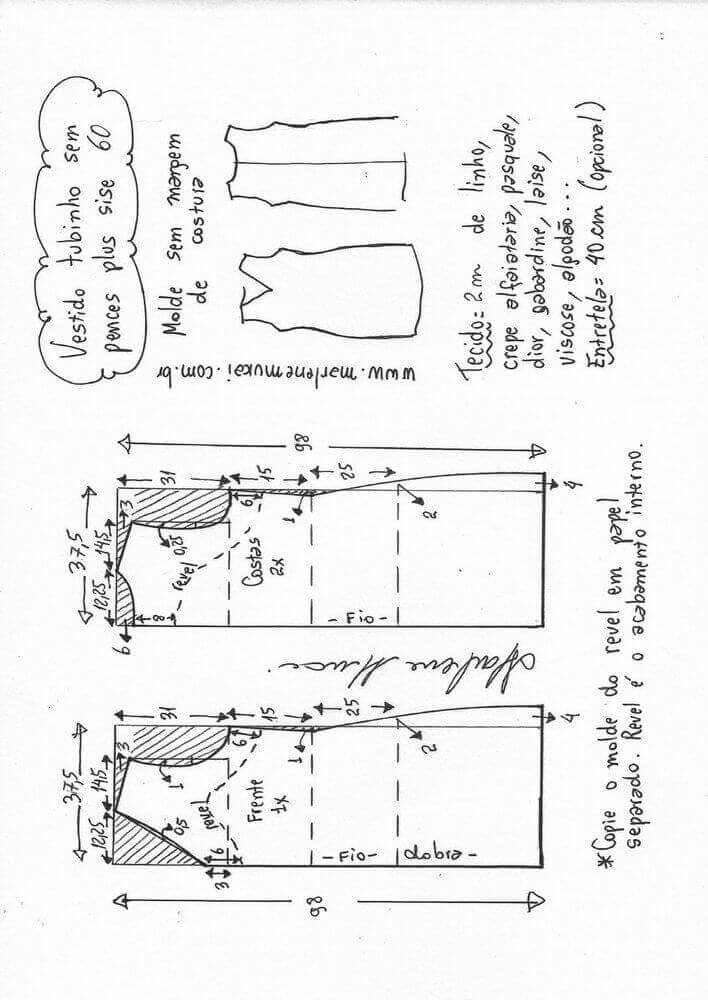 Vestido tubinho sem
pences plus sise 60
Molde sem margem
de costura
www.marlenemukai.com.br
Tecido = 2 m de linho,
crepe alfaiataria, pasquale,
dior, gabardine, laise,
viscose, algodão...
Entretela = 40 cm (opcional)
37,5
12,25
14,5
3
31
15
25
98
6
8
0,25
revel
Costas
2x
6
1
2
4
- Fio -
Marlene Mukai
37,5
12,25
14,5
3
31
15
25
98
0,5
1
revel
Frente
1x
6
3
6
1
2
4
- Fio -
dobra -
98
* Copie o molde do revel em papel
separado. Revel é o acabamento interno.